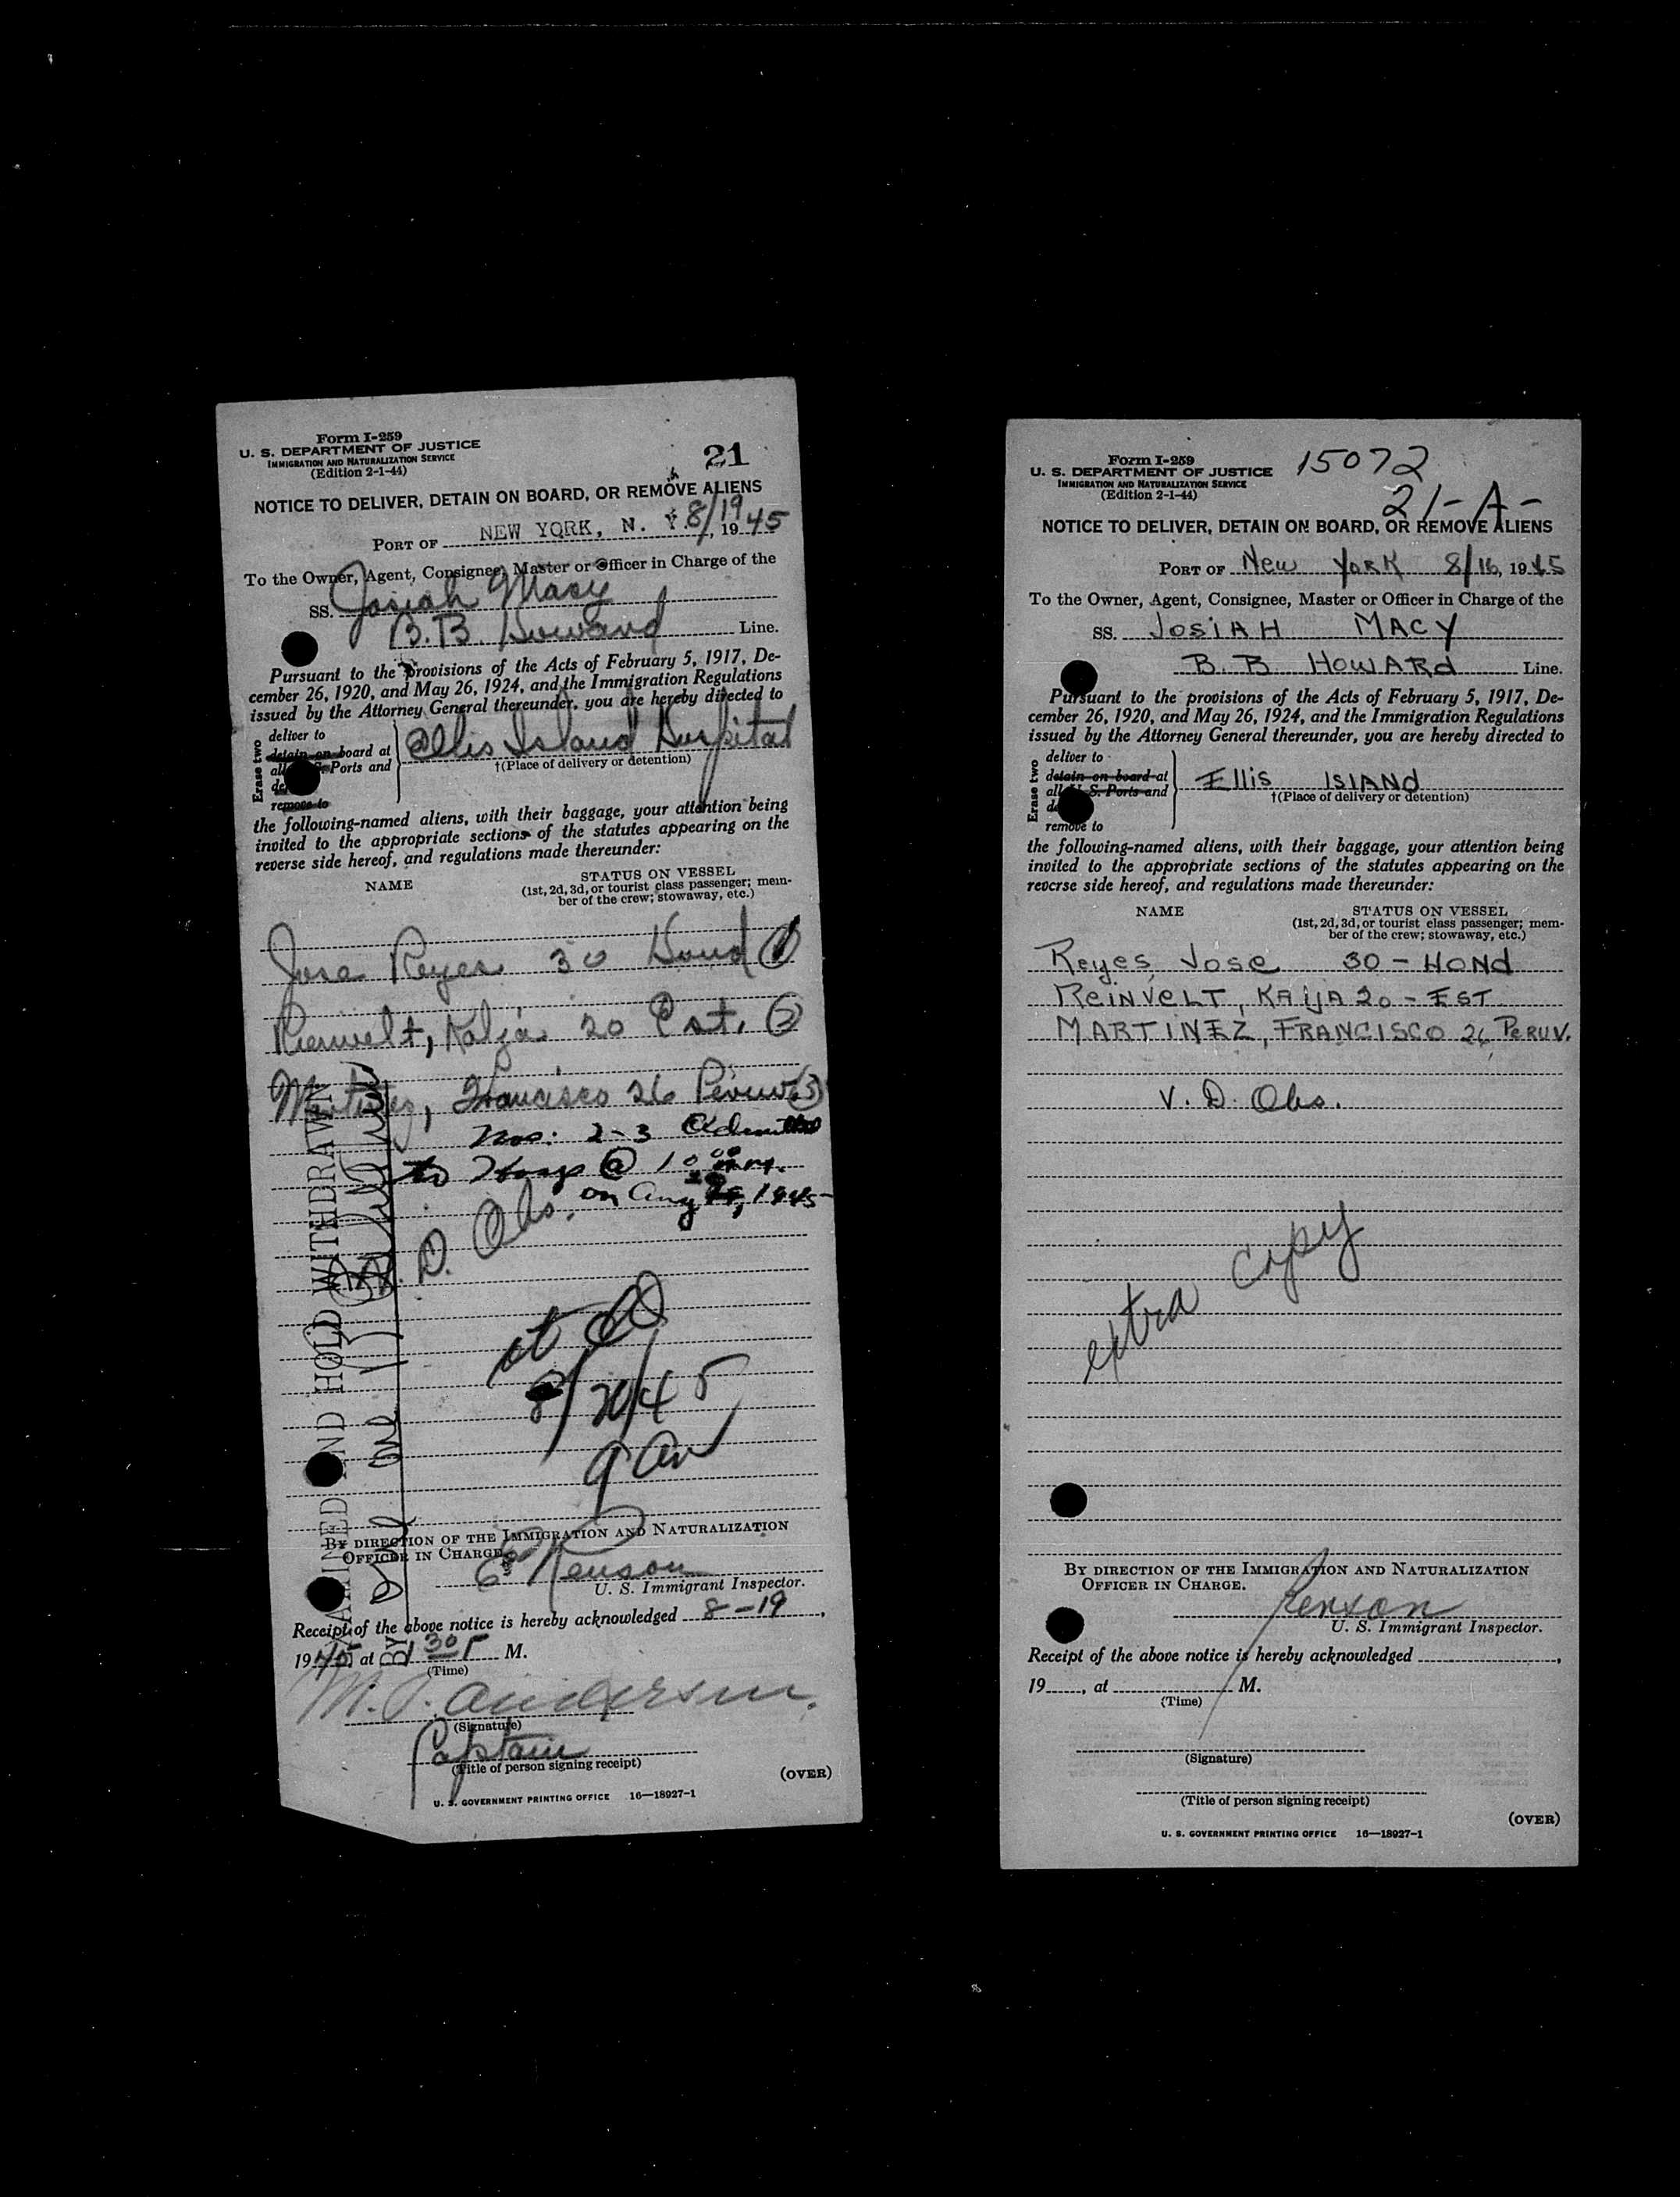 Form I-259
U. S. DEPARTMENT OF JUSTICE
IMMIGRATION AND NATURALIZATION SERVICE
(Edition 2-1-44)
21
NOTICE TO DELIVER, DETAIN ON BOARD, OR REMOVE ALIENS
PORT OF NEW YORK, N. Y. 8/19, 1945
To the Owner, Agent, Consignee, Master or Officer in Charge of the
SS. Josiah Macy
B. B. Howard Line.
Pursuant to the provisions of the Acts of February 5, 1917, De-
cember 26, 1920, and May 26, 1924, and the Immigration Regulations
issued by the Attorney General thereunder, you are hereby directed to
Erase two
deliver to
detain on board at
all Ports and
de
remove to
Ellis Island Hospital
†(Place of delivery or detention)
the following-named aliens, with their baggage, your attention being
invited to the appropriate sections of the statutes appearing on the
reverse side hereof, and regulations made thereunder:
NAME
STATUS ON VESSEL
(1st, 2d, 3d, or tourist class passenger; mem-
ber of the crew; stowaway, etc.)
Jose Reyes 30 Hond 1
Reinvelt, Kalja 20 Est. 2
Martinez, Francisco 26 Peruv 3
Nos: 2-3 Admitted
to Hosp @ 10 00
on Aug 1945
D. Obs.
8/20/45
HOLD WITHDRAWN
BY
BY DIRECTION OF THE IMMIGRATION AND NATURALIZATION
OFFICER IN CHARGE.
Renson
U. S. Immigrant Inspector.
Receipt of the above notice is hereby acknowledged 8-19,
1945 at 1 30 P M.
(Time)
M. P. Anderson.
(Signature)
Captain
(Title of person signing receipt)
(OVER)
U. S. GOVERNMENT PRINTING OFFICE 16—18927-1
Form I-259
U. S. DEPARTMENT OF JUSTICE
IMMIGRATION AND NATURALIZATION SERVICE
(Edition 2-1-44)
15072
21-A-
NOTICE TO DELIVER, DETAIN ON BOARD, OR REMOVE ALIENS
PORT OF New York 8/16, 1945
To the Owner, Agent, Consignee, Master or Officer in Charge of the
SS. JOSIAH MACY
B. B HOWARD Line.
Pursuant to the provisions of the Acts of February 5, 1917, De-
cember 26, 1920, and May 26, 1924, and the Immigration Regulations
issued by the Attorney General thereunder, you are hereby directed to
Erase two
deliver to
detain on board at
all U. S. Ports and
de
remove to
Ellis ISLAND
†(Place of delivery or detention)
the following-named aliens, with their baggage, your attention being
invited to the appropriate sections of the statutes appearing on the
reverse side hereof, and regulations made thereunder:
NAME
STATUS ON VESSEL
(1st, 2d, 3d, or tourist class passenger; mem-
ber of the crew; stowaway, etc.)
Reyes, Jose 30 - HOND
REINVELT, KAIJA 20 - EST
MARTINEZ, FRANCISCO 26 PERUV.
V. D. Obs.
extra copy
BY DIRECTION OF THE IMMIGRATION AND NATURALIZATION
OFFICER IN CHARGE.
Renson
U. S. Immigrant Inspector.
Receipt of the above notice is hereby acknowledged ,
19 , at M.
(Time)
(Signature)
(Title of person signing receipt)
(OVER)
U. S. GOVERNMENT PRINTING OFFICE 16—18927-1